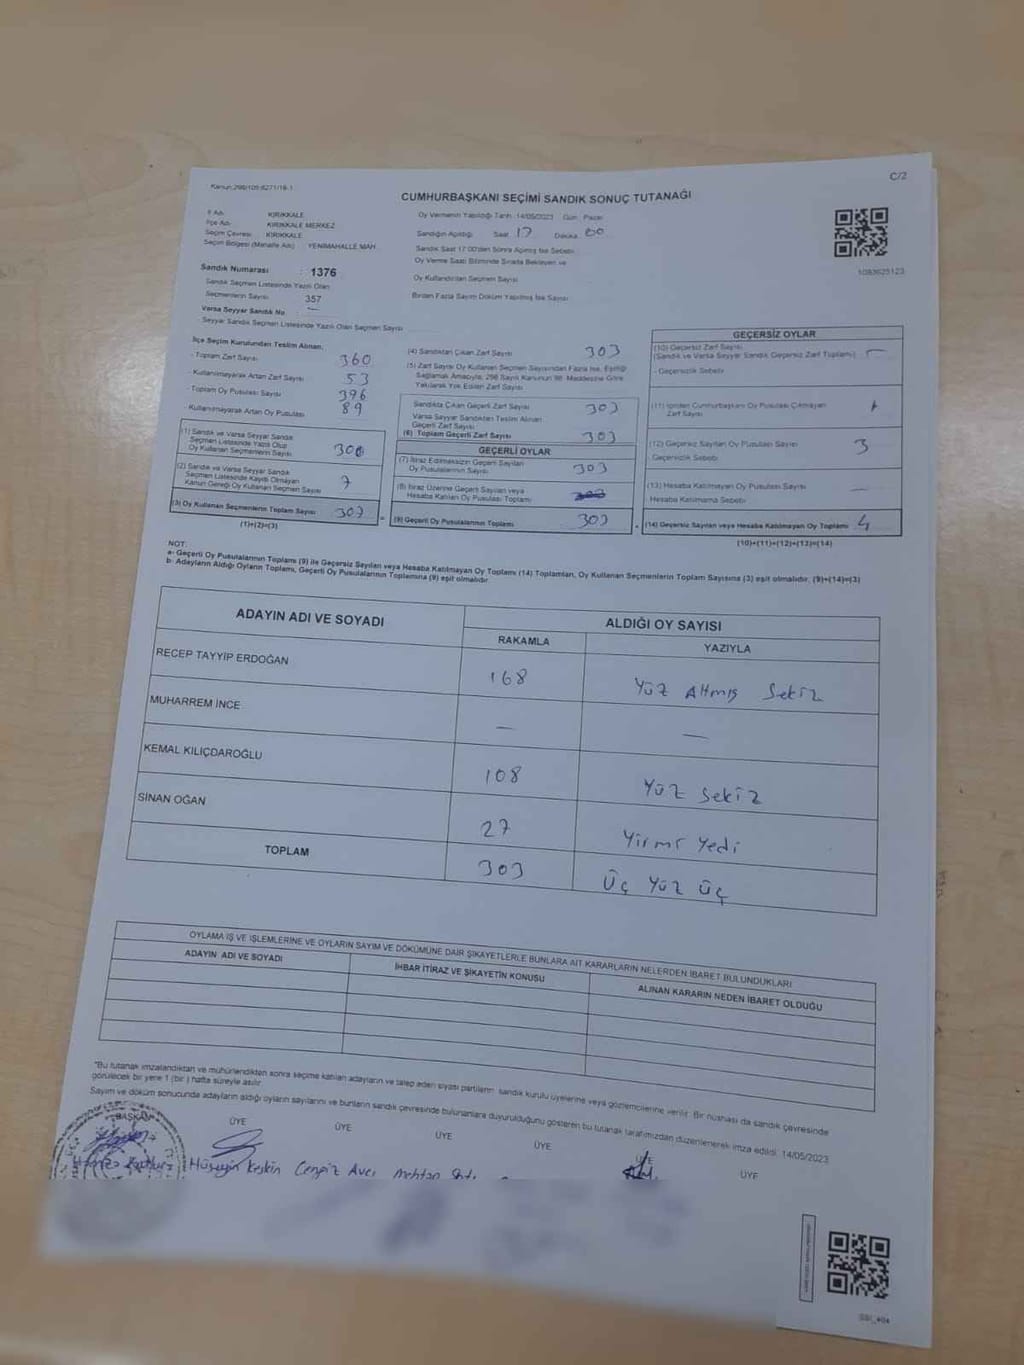 Kanun:298/105-6271/18-1
C/2
CUMHURBAŞKANI SEÇİMİ SANDIK SONUÇ TUTANAĞI
İl Adı KIRIKKALE
İlçe Adı KIRIKKALE MERKEZ
Seçim Çevresi KIRIKKALE
Seçim Bölgesi (Mahalle Adı) YENİMAHALLE MAH.
Sandık Numarası : 1376
Sandık Seçmen Listesinde Yazılı Olan
Seçmenlerin Sayısı 357
Varsa Seyyar Sandık No —
Seyyar Sandık Seçmen Listesinde Yazılı Olan Seçmen Sayısı
Oy Vermenin Yapıldığı Tarih :14/05/2023 Gün: Pazar
Sandığın Açıldığı Saat 17 Dakika 00
Sandık Saat 17:00'dan Sonra Açılmış İse Sebebi
Oy Verme Saati Bitiminde Sırada Bekleyen ve
Oy Kullandırılan Seçmen Sayısı
Birden Fazla Sayım Döküm Yapılmış İse Sayısı
1083625123
İlçe Seçim Kurulundan Teslim Alınan;
- Toplam Zarf Sayısı 360
- Kullanılmayarak Artan Zarf Sayısı 53
- Toplam Oy Pusulası Sayısı 396
- Kullanılmayarak Artan Oy Pusulası 89
(1) Sandık ve Varsa Seyyar Sandık
Seçmen Listesinde Yazılı Olup
Oy Kullanan Seçmenlerin Sayısı 300
(2) Sandık ve Varsa Seyyar Sandık
Seçmen Listesinde Kaydı Olmayan
Kanun Gereği Oy Kullanan Seçmen Sayısı 7
(3) Oy Kullanan Seçmenlerin Toplam Sayısı 307
(1)+(2)=(3)
(4) Sandıktan Çıkan Zarf Sayısı 303
(5) Zarf Sayısı Oy Kullanan Seçmen Sayısından Fazla İse, Eşitliği
Sağlamak Amacıyla, 298 Sayılı Kanunun 98. Maddesine Göre
Yakılarak Yok Edilen Zarf Sayısı
Sandıkta Çıkan Geçerli Zarf Sayısı 303
Varsa Seyyar Sandıktan Teslim Alınan
Geçerli Zarf Sayısı
(6) Toplam Geçerli Zarf Sayısı 303
GEÇERLİ OYLAR
(7) İtiraz Edilmeksizin Geçerli Sayılan
Oy Pusulalarının Sayısı 303
(8) İtiraz Üzerine Geçerli Sayılan veya
Hesaba Katılan Oy Pusulası Toplamı
(9) Geçerli Oy Pusulalarının Toplamı 303
GEÇERSİZ OYLAR
(10) Geçersiz Zarf Sayısı
(Sandık ve Varsa Seyyar Sandık Geçersiz Zarf Toplamı) —
- Geçersizlik Sebebi
(11) İçinden Cumhurbaşkanı Oy Pusulası Çıkmayan
Zarf Sayısı 1
(12) Geçersiz Sayılan Oy Pusulası Sayısı 3
Geçersizlik Sebebi
(13) Hesaba Katılmayan Oy Pusulası Sayısı —
Hesaba Katılmama Sebebi
(14) Geçersiz Sayılan veya Hesaba Katılmayan Oy Toplamı 4
(10)+(11)+(12)+(13)=(14)
NOT:
a- Geçerli Oy Pusulalarının Toplamı (9) ile Geçersiz Sayılan veya Hesaba Katılmayan Oy Toplamı (14) Toplamları, Oy Kullanan Seçmenlerin Toplam Sayısına (3) eşit olmalıdır. (9)+(14)=(3)
b- Adayların Aldığı Oyların Toplamı, Geçerli Oy Pusulalarının Toplamına (9) eşit olmalıdır.
ADAYIN ADI VE SOYADI ALDIĞI OY SAYISI
RAKAMLA YAZIYLA
RECEP TAYYİP ERDOĞAN 168 Yüz Altmış Sekiz
MUHARREM İNCE — —
KEMAL KILIÇDAROĞLU 108 Yüz Sekiz
SİNAN OĞAN 27 Yirmi Yedi
TOPLAM 303 Üç Yüz Üç
OYLAMA İŞ VE İŞLEMLERİNE VE OYLARIN SAYIM VE DÖKÜMÜNE DAİR ŞİKAYETLERLE BUNLARA AİT KARARLARIN NELERDEN İBARET BULUNDUKLARI
ADAYIN ADI VE SOYADI İHBAR İTİRAZ VE ŞİKAYETİN KONUSU ALINAN KARARIN NEDEN İBARET OLDUĞU
"Bu tutanak imzalandıktan ve mühürlendikten sonra seçime katılan adayların ve talep eden siyasi partilerin sandık kurulu üyelerine veya gözlemcilerine verilir. Bir nüshası da sandık çevresinde
görülecek bir yere 1 (bir) hafta süreyle asılır.
Sayım ve döküm sonucunda adayların aldığı oyların sayılarını ve bunların sandık çevresinde bulunanlara duyurulduğunu gösteren bu tutanak tarafımızdan düzenlenerek imza edildi. 14/05/2023
BAŞKAN ÜYE ÜYE ÜYE ÜYE ÜYE ÜYE
Hüseyin Keskin Cengiz Avcı